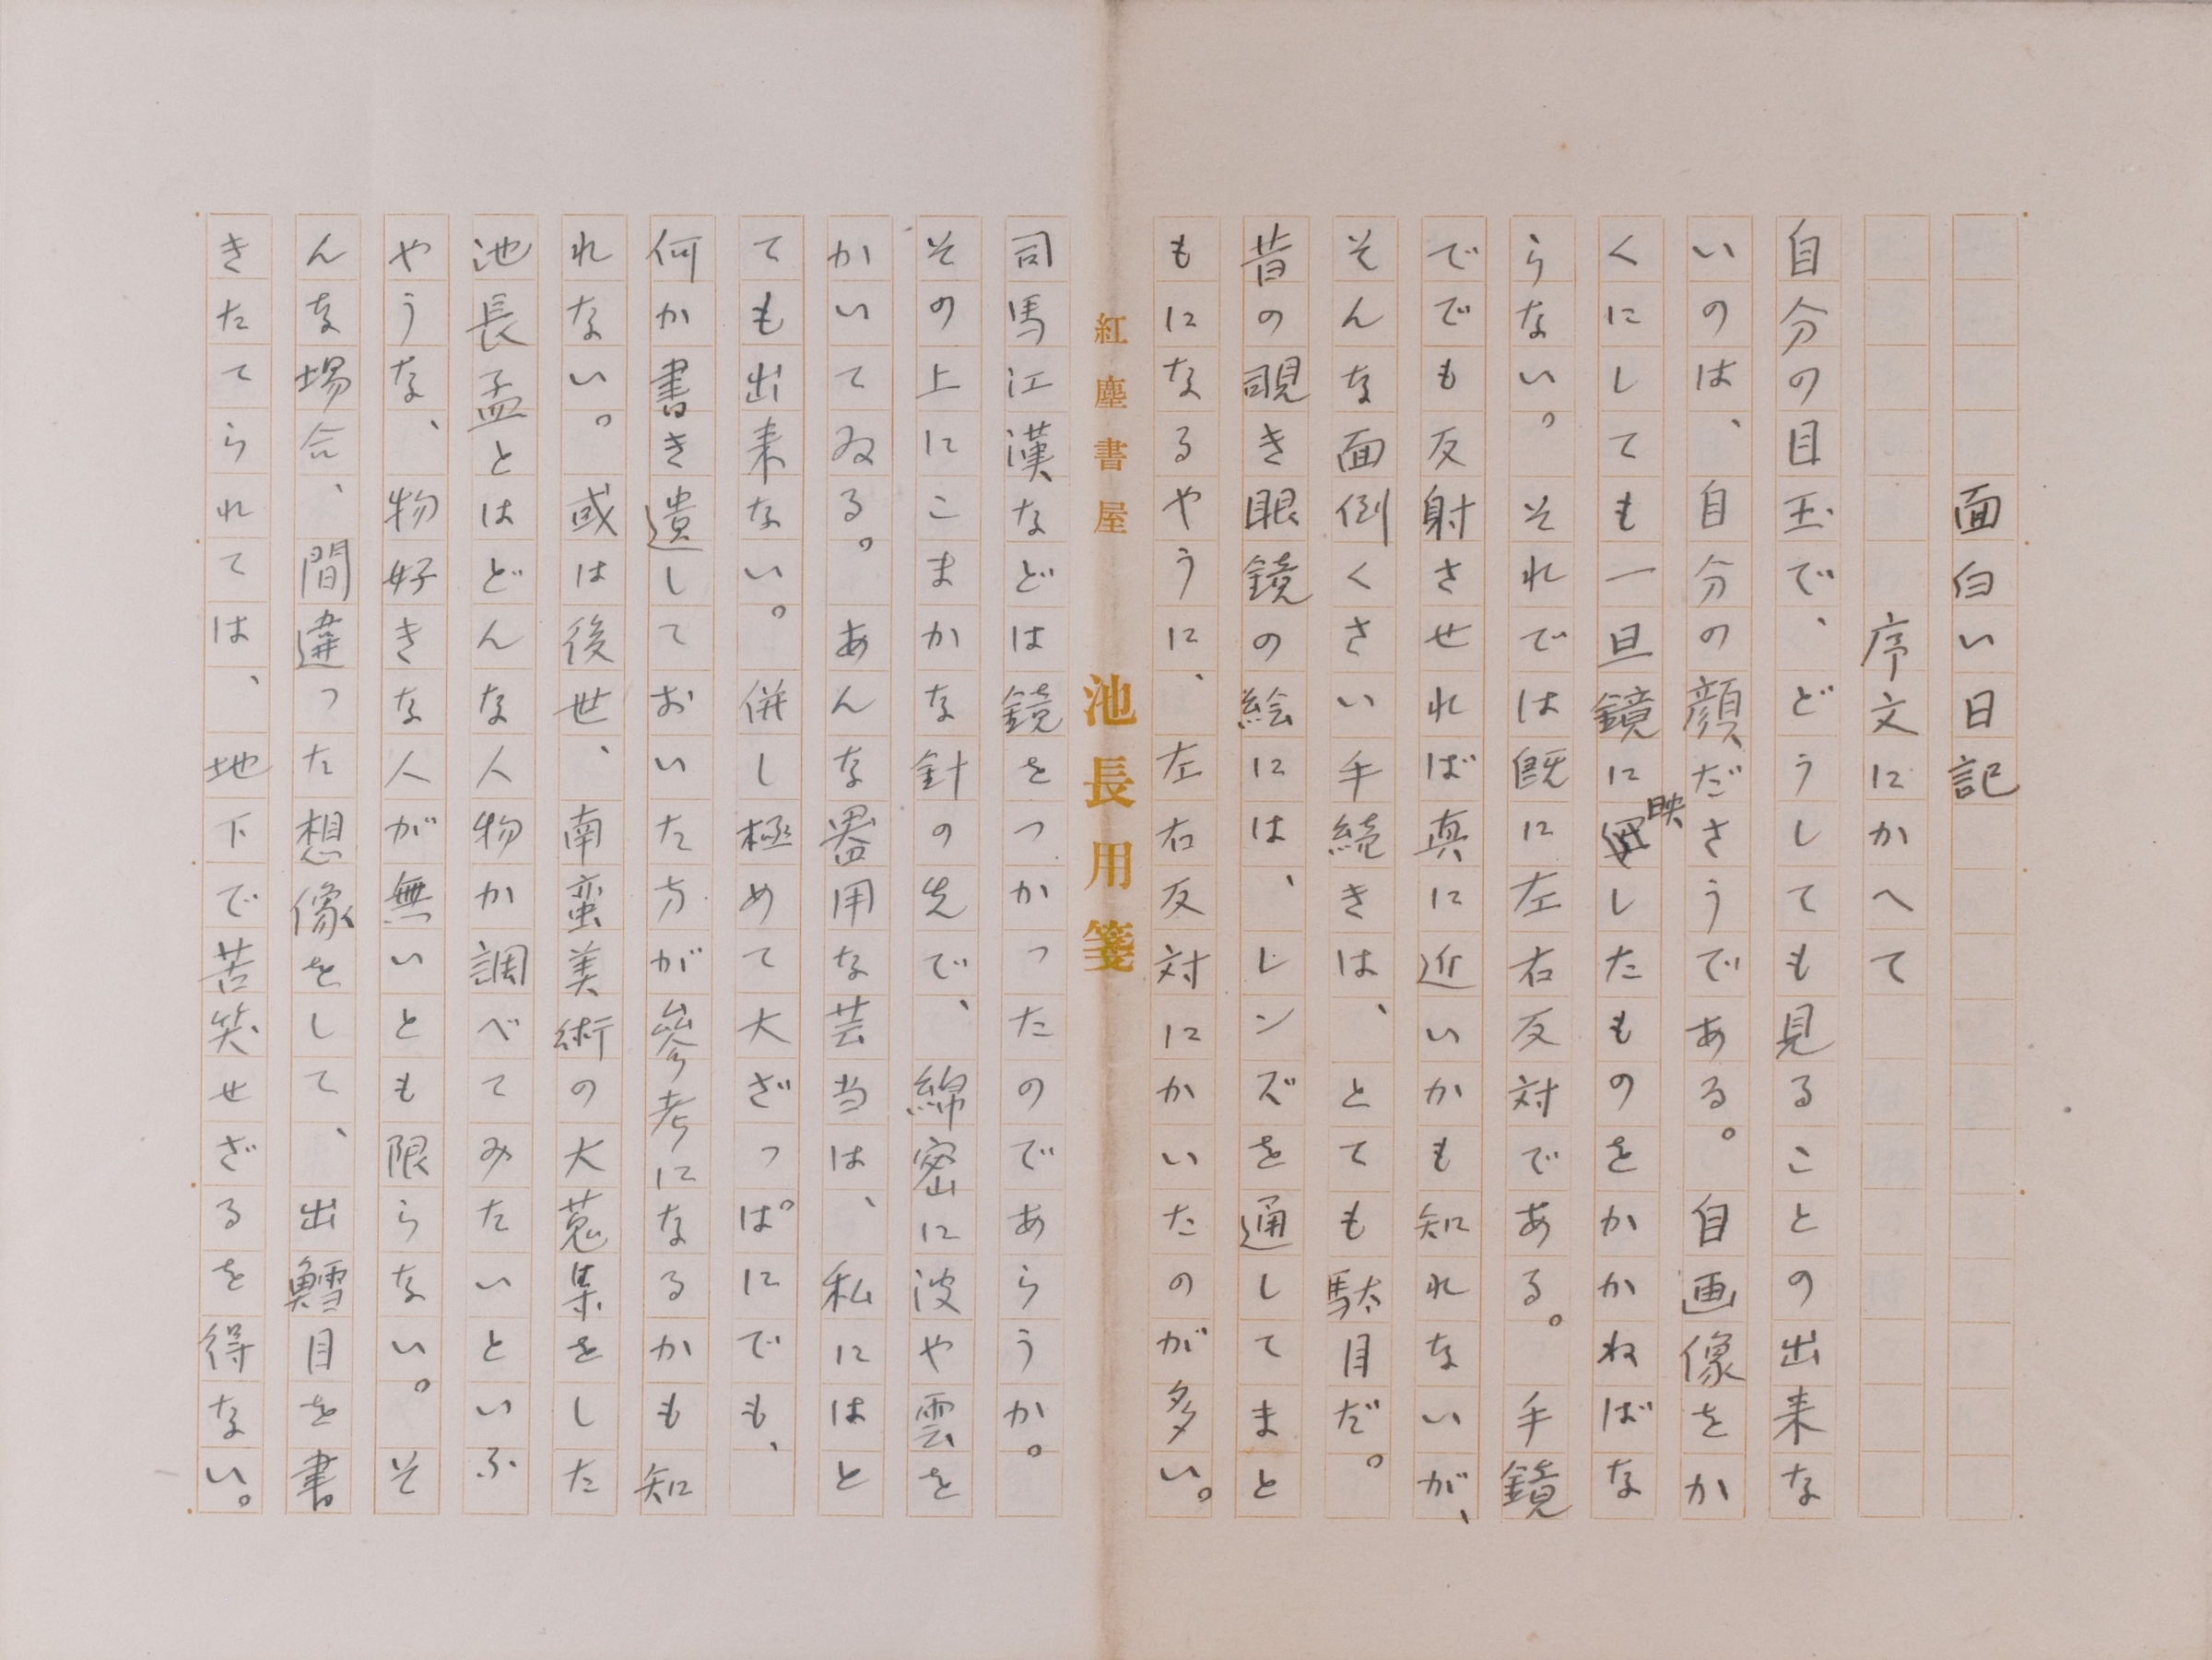 面白い日記
序文にかへて
自分の目玉で、どうしても見ることの出来な
いのは、自分の顔ださうである。自画像をか
くにしても一旦鏡に映したものをかかねばな
らない。それでは既に左右反対である。手鏡
ででも反射させれば真に近いかも知れないが、
そんな面倒くさい手続きは、とても駄目だ。
昔の覗き眼鏡の絵には、レンズを通してまと
もになるやうに、左右反対にかいたのが多い。
紅塵書屋 池長用箋
司馬江漢などは鏡をつかつたのであらうか。
その上にこまかな針の先で、綿密に波や雲を
かいてゐる。あんな器用な芸当は、私にはと
ても出来ない。併し極めて大ざつぱにでも、
何か書き遺しておいた方が參考になるかも知
れない。或は後世、南蛮美術の大蒐集をした
池長孟とはどんな人物か調べてみたいといふ
やうな、物好きな人が無いとも限らない。そ
んな場合、間違つた想像をして、出鱈目を書
きたてられては、地下で苦笑せざるを得ない。